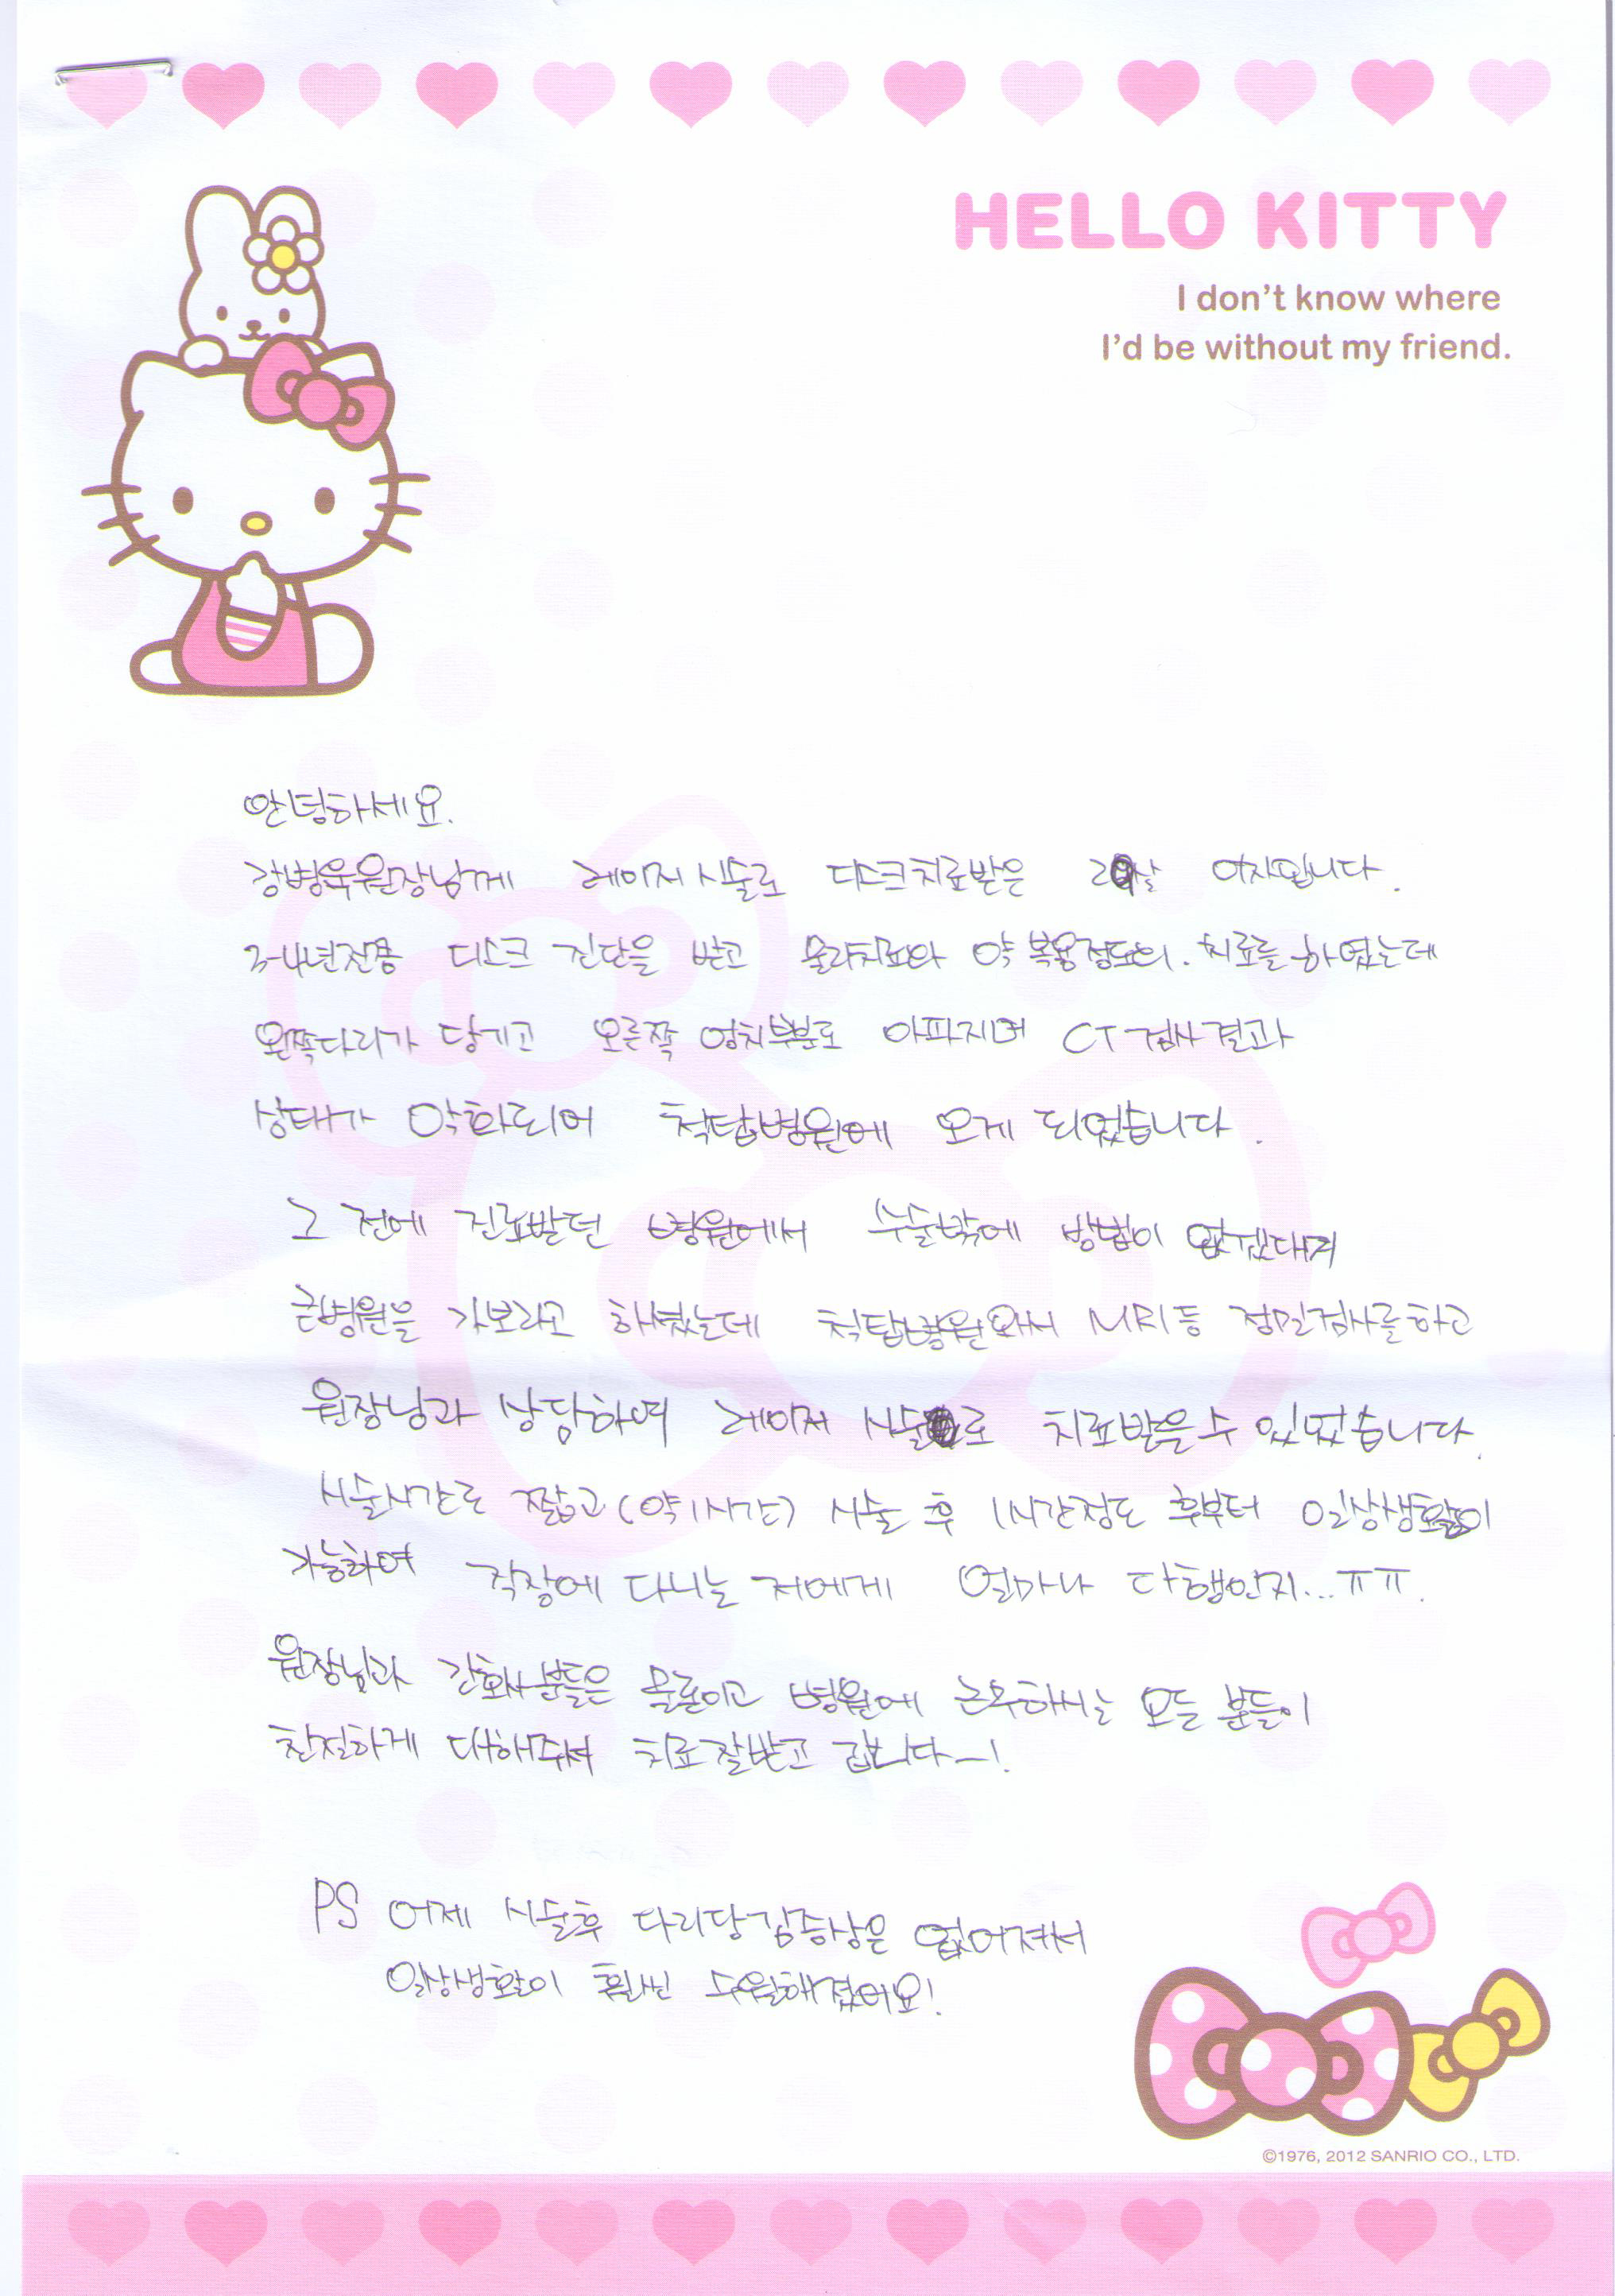 HELLO KITTY
I don't know where
I'd be without my friend.
안녕하세요.
강병욱원장님께 레이저 시술로 디스크치료받은 29살 여자입니다.
3-4년전쯤 디스크 진단을 받고 물리치료와 약 복용정도의. 치료를 하였는데
왼쪽다리가 당기고 오른쪽 엉치부분도 아파지며 CT 검사결과
상태가 악화되어 척탑병원에 오게 되었습니다.
그 전에 진료받던 병원에서 수술밖에 방법이 없겠대며
큰병원을 가보라고 하셨는데 척탑병원와서 MRI등 정밀검사를하고
원장님과 상담하여 레이저 시술로 치료받을수 있었습니다.
시술시간도 짧고(약1시간) 시술 후 1시간정도 후부터 일상생활이
가능하여 직장에 다니는 저에게 얼마나 다행인지...ㅠㅠ.
원장님과 간호사분들은 물론이고 병원에 근무하시는 모든 분들이
친절하게 대해주셔 치료잘받고 갑니다~!
PS 어제 시술후 다리당김증상은 없어져서
일상생활이 훨씬 수월해졌어요!
©1976, 2012 SANRIO CO., LTD.